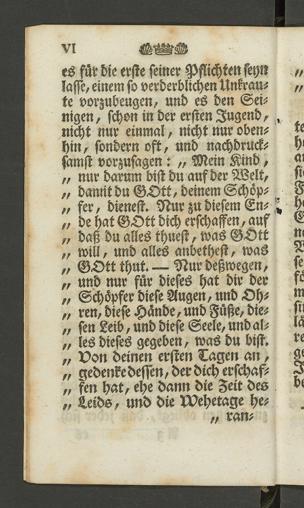 VI
es für die erste seiner Pflichten seyn
lasse, einem so verderblichen Unkrau-
te vorzubeugen, und es den Sei-
nigen, schon in der ersten Jugend,
nicht nur einmal, nicht nur oben-
hin, sondern oft, und nachdruck-
samst vorzusagen: „ Mein Kind,
„ nur darum bist du auf der Welt,
„ damit du GOtt, deinem Schöp-
„ fer, dienest. Nur zu diesem En-
„ de hat GOtt dich erschaffen, auf
„ daß du alles thuest, was GOtt
„ will, und alles anbethest, was
„ GOtt thut. — Nur deßwegen,
„ und nur für dieses hat dir der
„ Schöpfer diese Augen, und Oh-
„ ren, diese Hände, und Füße, die-
„ sen Leib, und diese Seele, und al-
„ les dieses gegeben, was du bist.
„ Von deinen ersten Tagen an,
„ gedenke dessen, der dich erschaf-
„ fen hat, ehe dann die Zeit des
„ Leids, und die Wehetage he-
„ ran-